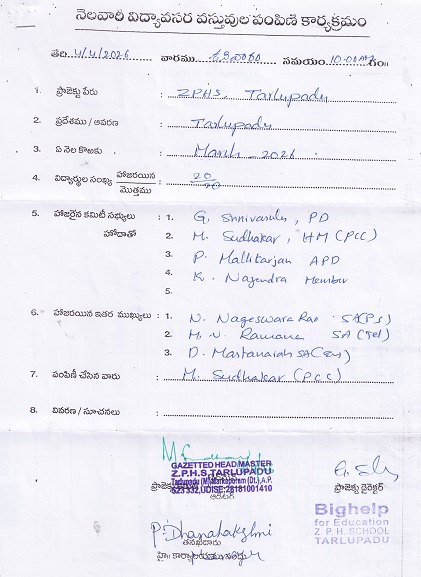 నెలవారీ విద్యావసర వస్తువుల పంపిణి కార్యక్రమం
తేది. 4/4/2026 వారము. శనివారం సమయం. 10:00 గం॥
1. ప్రాజెక్టు పేరు : ZPHS, Tarlupadu
2. ప్రదేశము / ఆవరణ : Tarlupadu
3. ఏ నెల కొఱకు : March - 2026
4. విద్యార్థుల సంఖ్య హాజరయిన / మొత్తము : 20/20
5. హాజరైన కమిటీ సభ్యులు : 1. G. Srinivasulu, PD
హోదాతో 2. M. Sudhakar, HM (PCC)
3. P. Mallikarjan APD
4. K. Nagendra Member
5.
6. హాజరయిన ఇతర ముఖ్యులు : 1. N. Nageswara Rao SA(PS)
2. M. V. Ramana SA (Tel)
3. D. Mastanaiah SA
7. పంపిణీ చేసిన వారు : M. Sudhakar (PCC)
8. వివరణ / సూచనలు :
GAZETTED HEAD MASTER
Z.P.H.S, TARLUPADU
Tarlupadu (M), Markapuram (Dt.), A.P.
523 332, UDISE: 28181001410
ప్రాజెక్టు డైరెక్టర్
Bighelp
for Education
Z P. H. SCHOOL
TARLUPADU
P. Dhanalakshmi